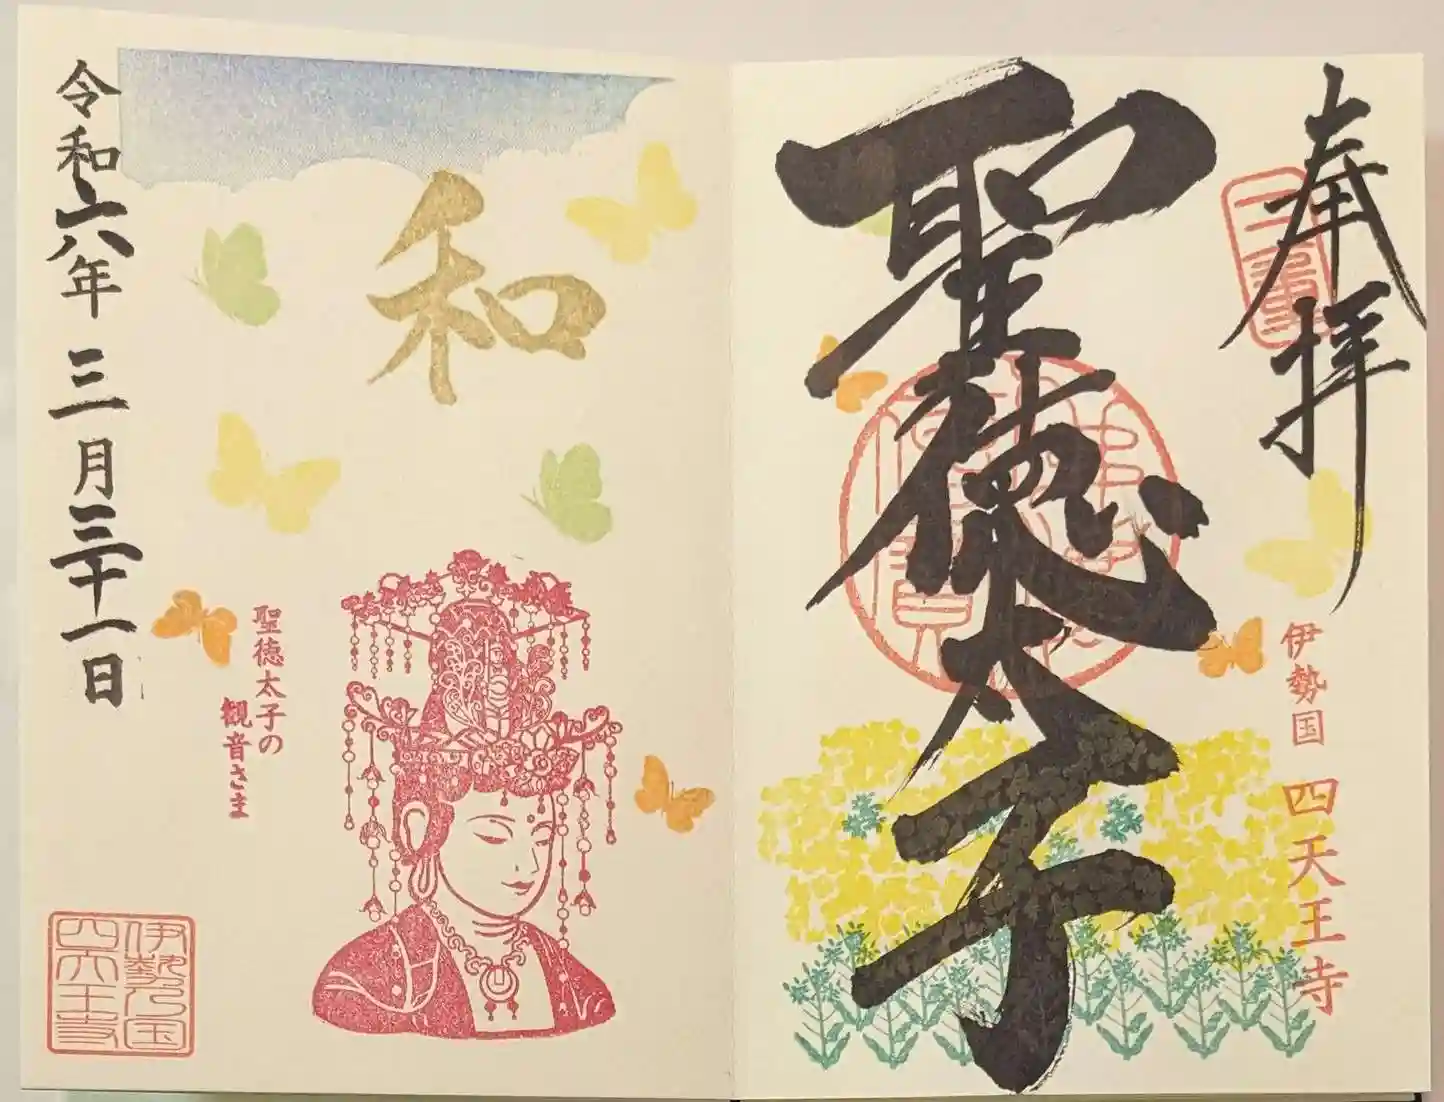 奉拝
三重
聖徳太子
伊勢国 四天王寺
和
聖徳太子の
観音さま
令和六年 三月三十一日
伊勢乃国
四天王寺